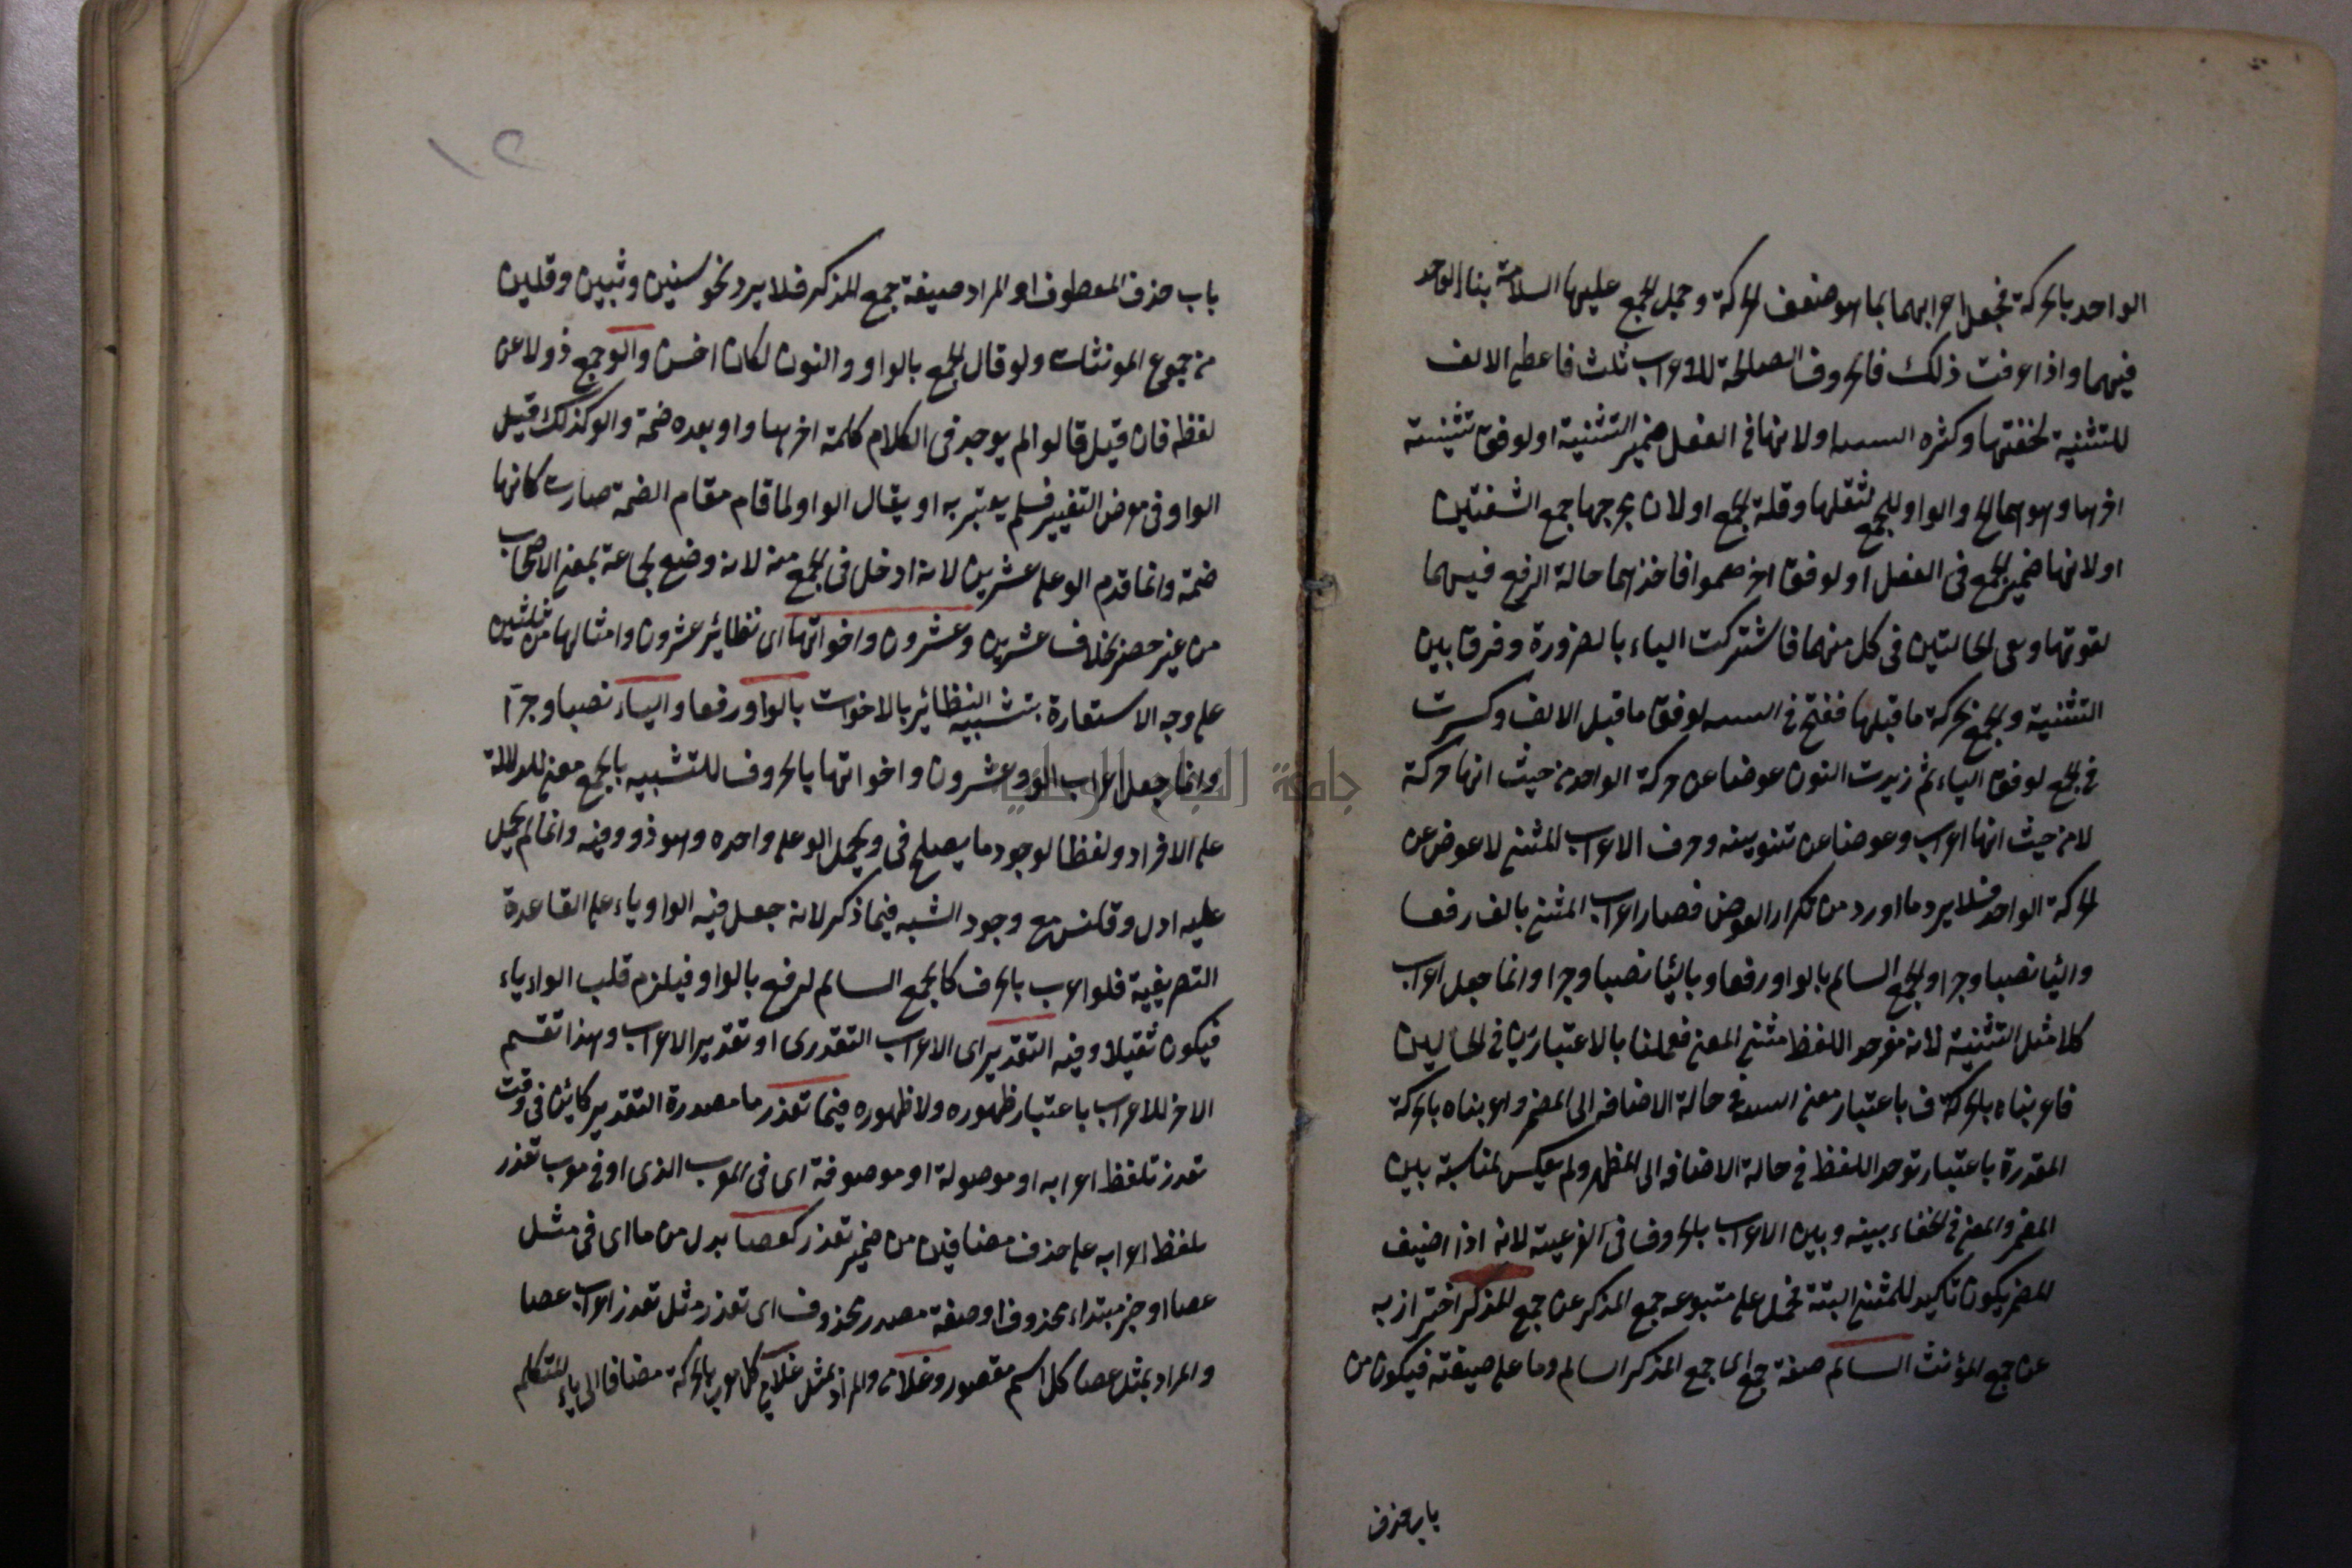 الواحد بالحركة فجعل اعرابهما بما هو ضعف الحركة وحمل الجمع عليها السلامة بناء الواحد
فيهما واذا عرفت ذلك فالحروف الصالحة للاعراب ثلث فاعطى الالف
للتثنية لخفتها وكثرة ولانها فى الفعل ضمير التثنية او لوفق تثنيته
اخرها وهو هما والواو للجمع لثقلها وقلة الجمع او لان مخرجها جمع الشفتين
او لانها ضمير الجمع فى الفعل او لوفق اخر هموا فاخذهما حالة الرفع فيهما
لقوتها وبقى الحالتين فى كل منهما فاشتركت الياء بالضرورة وفرق بين
التثنية والجمع بحركة ما قبلها ففتح فى لوفق ما قبل الالف وكسرت
فى الجمع لوفق الياء ثم زيدت النون عوضا عن حركة الواحد من حيث انها حركة
لا من حيث انها اعراب وعوضا عن تنوينه وحرف الاعراب للمثنى لا عوض عن
الحركة الواحد فلا يرد ما اورد من تكرار العوض فصار اعراب المثنى بالف رفعا
واليا نصبا وجرا والجمع السالم بالواو رفعا وباليا نصبا وجرا وانما جعل اعراب
كلا مثل التثنية لانه مفرد اللفظ مثنى المعنى فعملنا بالاعتبارين فى الحالين
فاعربناه بالحركة ف باعتبار معنى حالة الاضافه الى المضمر واعربناه بالحركة
المقدرة باعتبار توحد اللفظ فى حالة الاضافه الى المظهر ولم يعكس لمناسبة بين
المضمر والمعنى فى الخفاء بينه وبين الاعراب بالحروف فى الفرعية لانه اذا اضيف
للمضمر يكون تاكيد للمثنى البتة فحمل على متبوعه جمع المذكر عن جمع المذكر احترازبه
عن جمع المؤنث السالم صفة جمع اى جمع المذكر السالم وما على صيغته فيكون من
باب حذف
باب حذف المعطوف او المراد صيغة جمع المذكر فلا يرد نحو سنين وثبين وقلين
من جموع المونثات ولو قال الجمع بالواو والنون لكان احسن والو جمع ذو لا عن
لفظه فان قيل قالوا لم يوجد فى الكلام كلمة اخرها واو بعده ضمة والو كذلك قيل
الواو فى عوض التغيير فلم يعتبر به او يقال الواو لما قام مقام الضمة صارت كانها
ضمة وانما قدم الو على عشرين لانه ادخل فى الجمع منه لانه وضع لجماعة بمعنى الاصحاب
من غير حصر بخلاف عشرين وعشرون واخواتها اى نظائر عشرون وامثالها من ثلثين
على وجه الاستعارة بتشبيه النظائر بالاخوات بالواو رفعا والياء نصبا وجرا
وانما جعل اعراب الو وعشرون واخواتها بالحروف للتشبيه بالجمع معنى للدلالة
على الافراد ولفظا لوجود ما يصلح فى ويحمل الو على واحده وهو ذو وفيه وانما لم يحمل
عليه ادل مع وجود الشبه فيما ذكر لانه جعل فيه الواو ياء على القاعدة
التصريفية فلو اعرب بالحرف كالجمع السالم لرفع بالواو فيلزم قلب الواو ياء
فيكون ثقيلا وفيه التقدير اى الاعراب التقدرى او تقدير الاعراب وهذا تقسم
الاخر للاعراب باعتبار ظهوره ولا ظهوره فيما تعذر ما مصدرة التقدير كائن فى وقت
تعذر تلفظ اعرابه او موصولة او موصوفة اى فى المعرب الذى او فى معرب تعذر
تلفظ اعرابه على حذف مضافين من ضمير تعذر كعصا بدل من ما اى فى مثل
عصا او خبر مبتداء محذوف او صفة مصدر محذوف اى تعذر مثل تعذر اعراب عصا
والمراد بمثل عصا كل اسم مقصور وغلامى والمراد بمثل غلامى كل معرب بالحركة مضافا الى ياء المتكلم
١٢
جامعة النجاح الوطنية